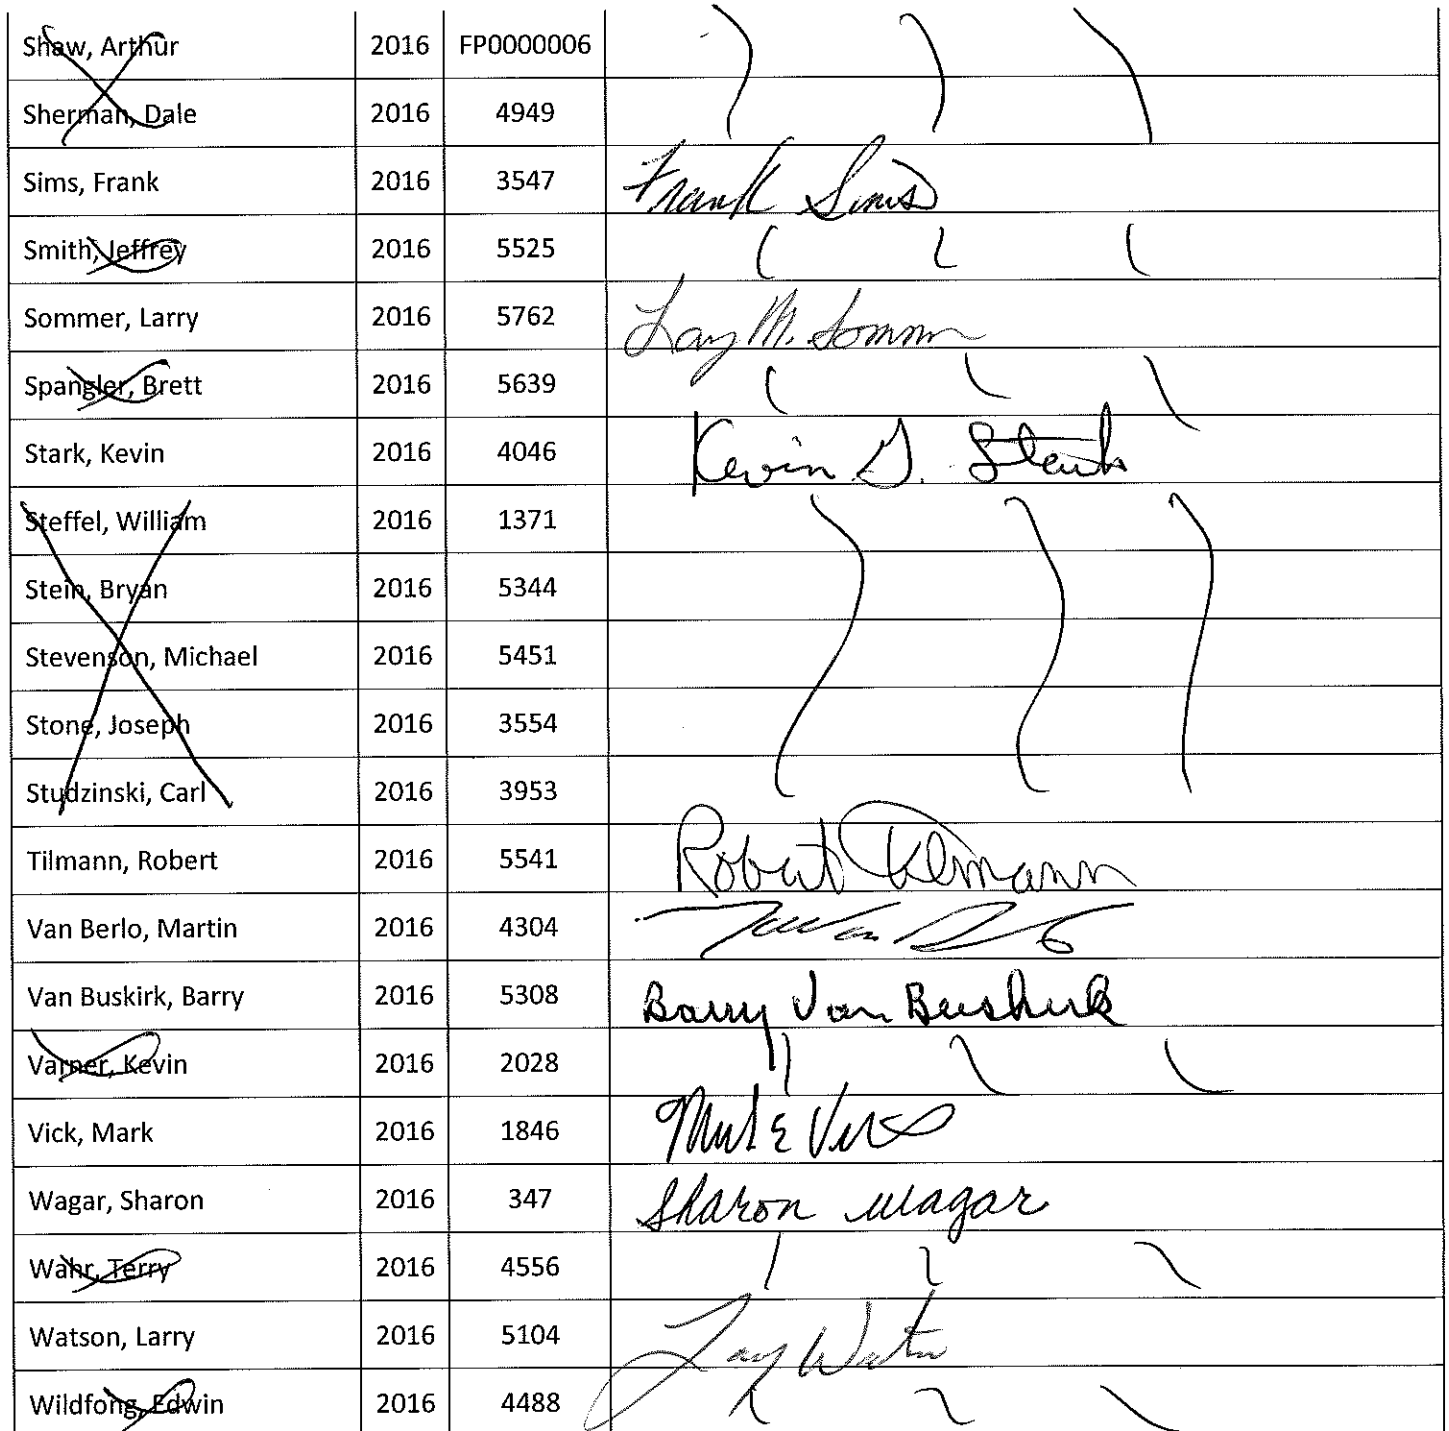 Shaw, Arthur 2016 FP0000006
Sherman, Dale 2016 4949
Sims, Frank 2016 3547 Frank Sims
Smith, Jeffrey 2016 5525
Sommer, Larry 2016 5762 Larry M. Sommer
Spangler, Brett 2016 5639
Stark, Kevin 2016 4046 Kevin G. Stark
Steffel, William 2016 1371
Stein, Bryan 2016 5344
Stevenson, Michael 2016 5451
Stone, Joseph 2016 3554
Studzinski, Carl 2016 3953
Tilmann, Robert 2016 5541 Robert Tilmann
Van Berlo, Martin 2016 4304
Van Buskirk, Barry 2016 5308 Barry Van Buskirk
Varner, Kevin 2016 2028
Vick, Mark 2016 1846 Mark E Vick
Wagar, Sharon 2016 347 Sharon Wagar
Wahr, Terry 2016 4556
Watson, Larry 2016 5104 Larry Watson
Wildfong, Edwin 2016 4488